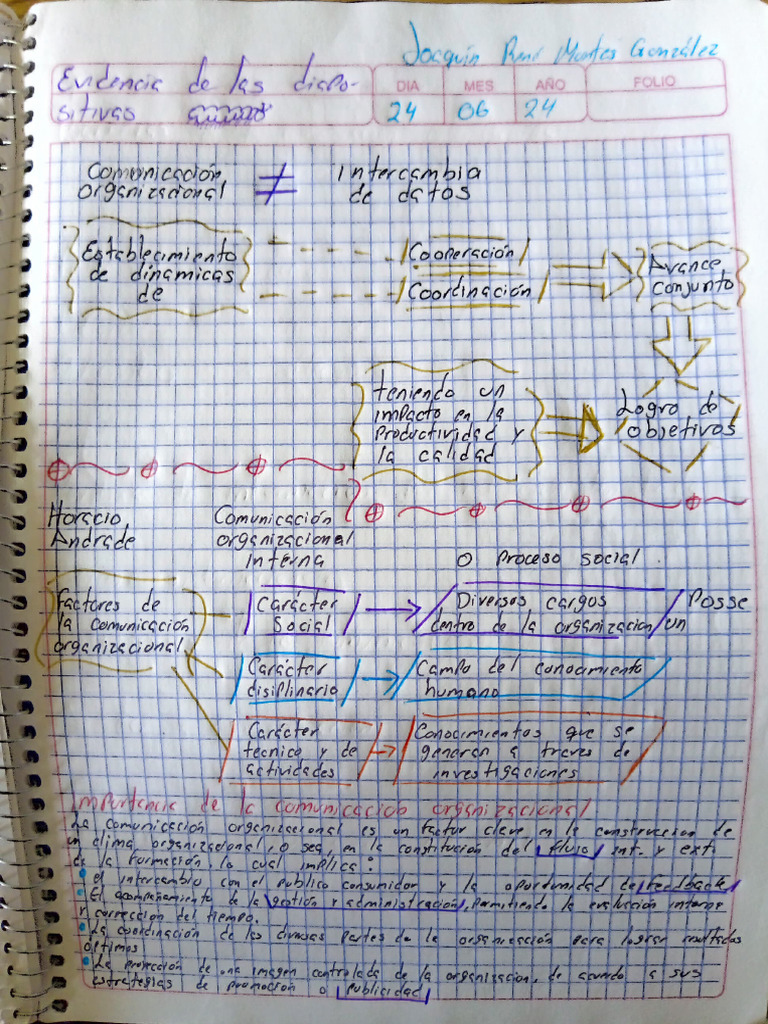 Joaquín René Montes González
Evidencia de las diapo-
sitivas
DIA MES AÑO FOLIO
24 06 24
Comunicación ≠ Intercambia
organizacional de datos
Establecimiento
de dinamicas
de
Cooperación
Coordinación
Avance
conjunto
teniendo un
impacto en la
productividad y
la calidad
Logro de
objetivos
Horacio
Andrade
Comunicación
organizacional
interna
O Proceso social.
Factores de
la comunicación
organizacional
Carácter
Social
Diversos cargos
dentro de la organización
Posse
un
Carácter
disiplinario
Campo del conocamiento
humano
Carácter
tecnico y de
actividades
Conocimientos que se
generan a traves de
investigaciones
Importancia de la comunicacion organizacional
La comunicación organizacional es un factor clave en la construccion de
un clima organizacional, o sea, en la constitución del flujo int. y ext.
de la formación, lo cual implica:
• el intercambio con el publico consumidor y la oportunidad de feedback
• El acompañamiento de la gestión y administración, permitiendo la evaluación interna
y corrección del tiempo.
• La coordinación de las diversas partes de la organización para lograr resultados
optimos
• La proyección de una imagen controlada de la organización, de acuerdo a sus
estrategias de promoción o publicidad